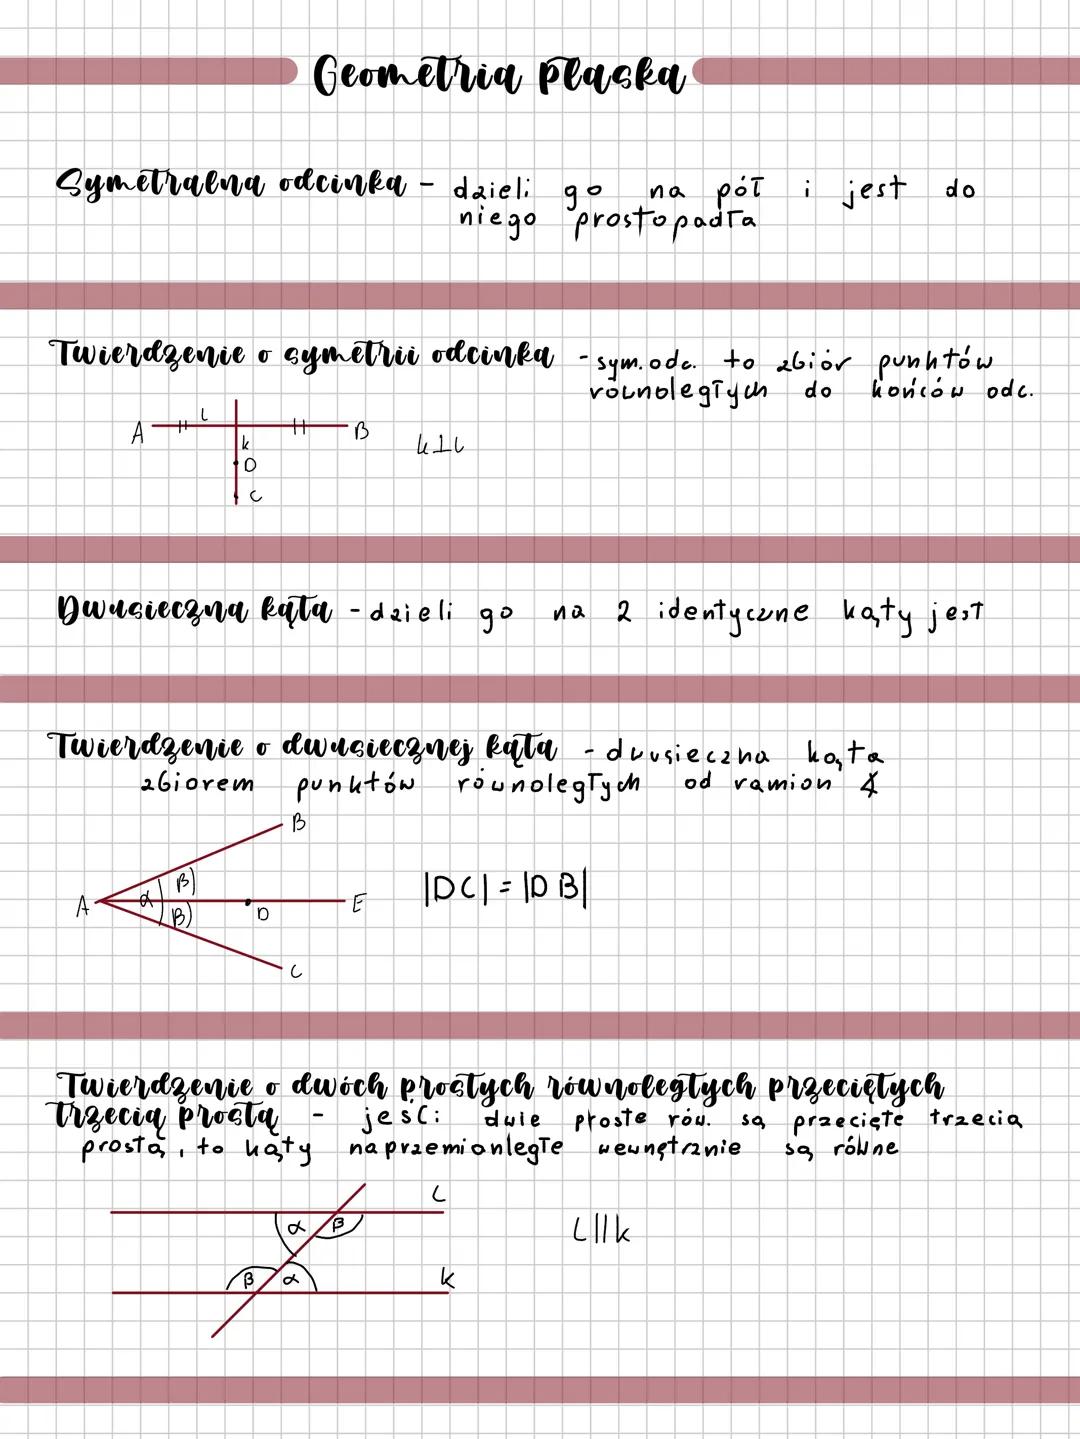 Geometria płaska
Symetralna odcinka - dzieli go na pół i jest do
niego prostopadła
Twierdzenie o symetrii odcinka - sym. odc. to zbiór punktów
równoległych do końców odc.
A l B
k
D
C
k⊥l
Dwusieczna kąta - dzieli go na 2 identyczne kąty jest
Twierdzenie o dwusiecznej kąta - dwusieczna kąta
zbiorem punktów równoległych od ramion ∢
B
A α β) D E
β)
C
|DC| = |DB|
Twierdzenie o dwóch prostych równoległych przeciętych
trzecią prostą - jeśli dwie proste rów. są przecięte trzecią
prostą, to kąty naprzemianległe wewnętrznie są równe
L
α β
β α k
L||k